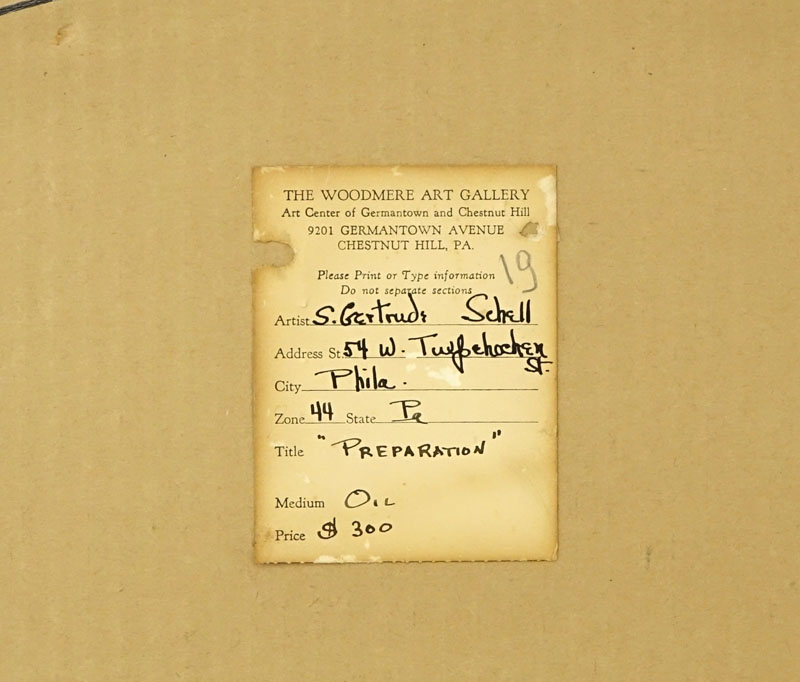 THE WOODMERE ART GALLERY
Art Center of Germantown and Chestnut Hill
9201 GERMANTOWN AVENUE
CHESTNUT HILL, PA.
19
Please Print or Type information
Do not separate sections
Artist S. Gertrude Schell
Address St. 54 W. Tulpehocken St.
City Phila.
Zone 44 State Pa
Title "PREPARATION"
Medium OIL
Price $ 300